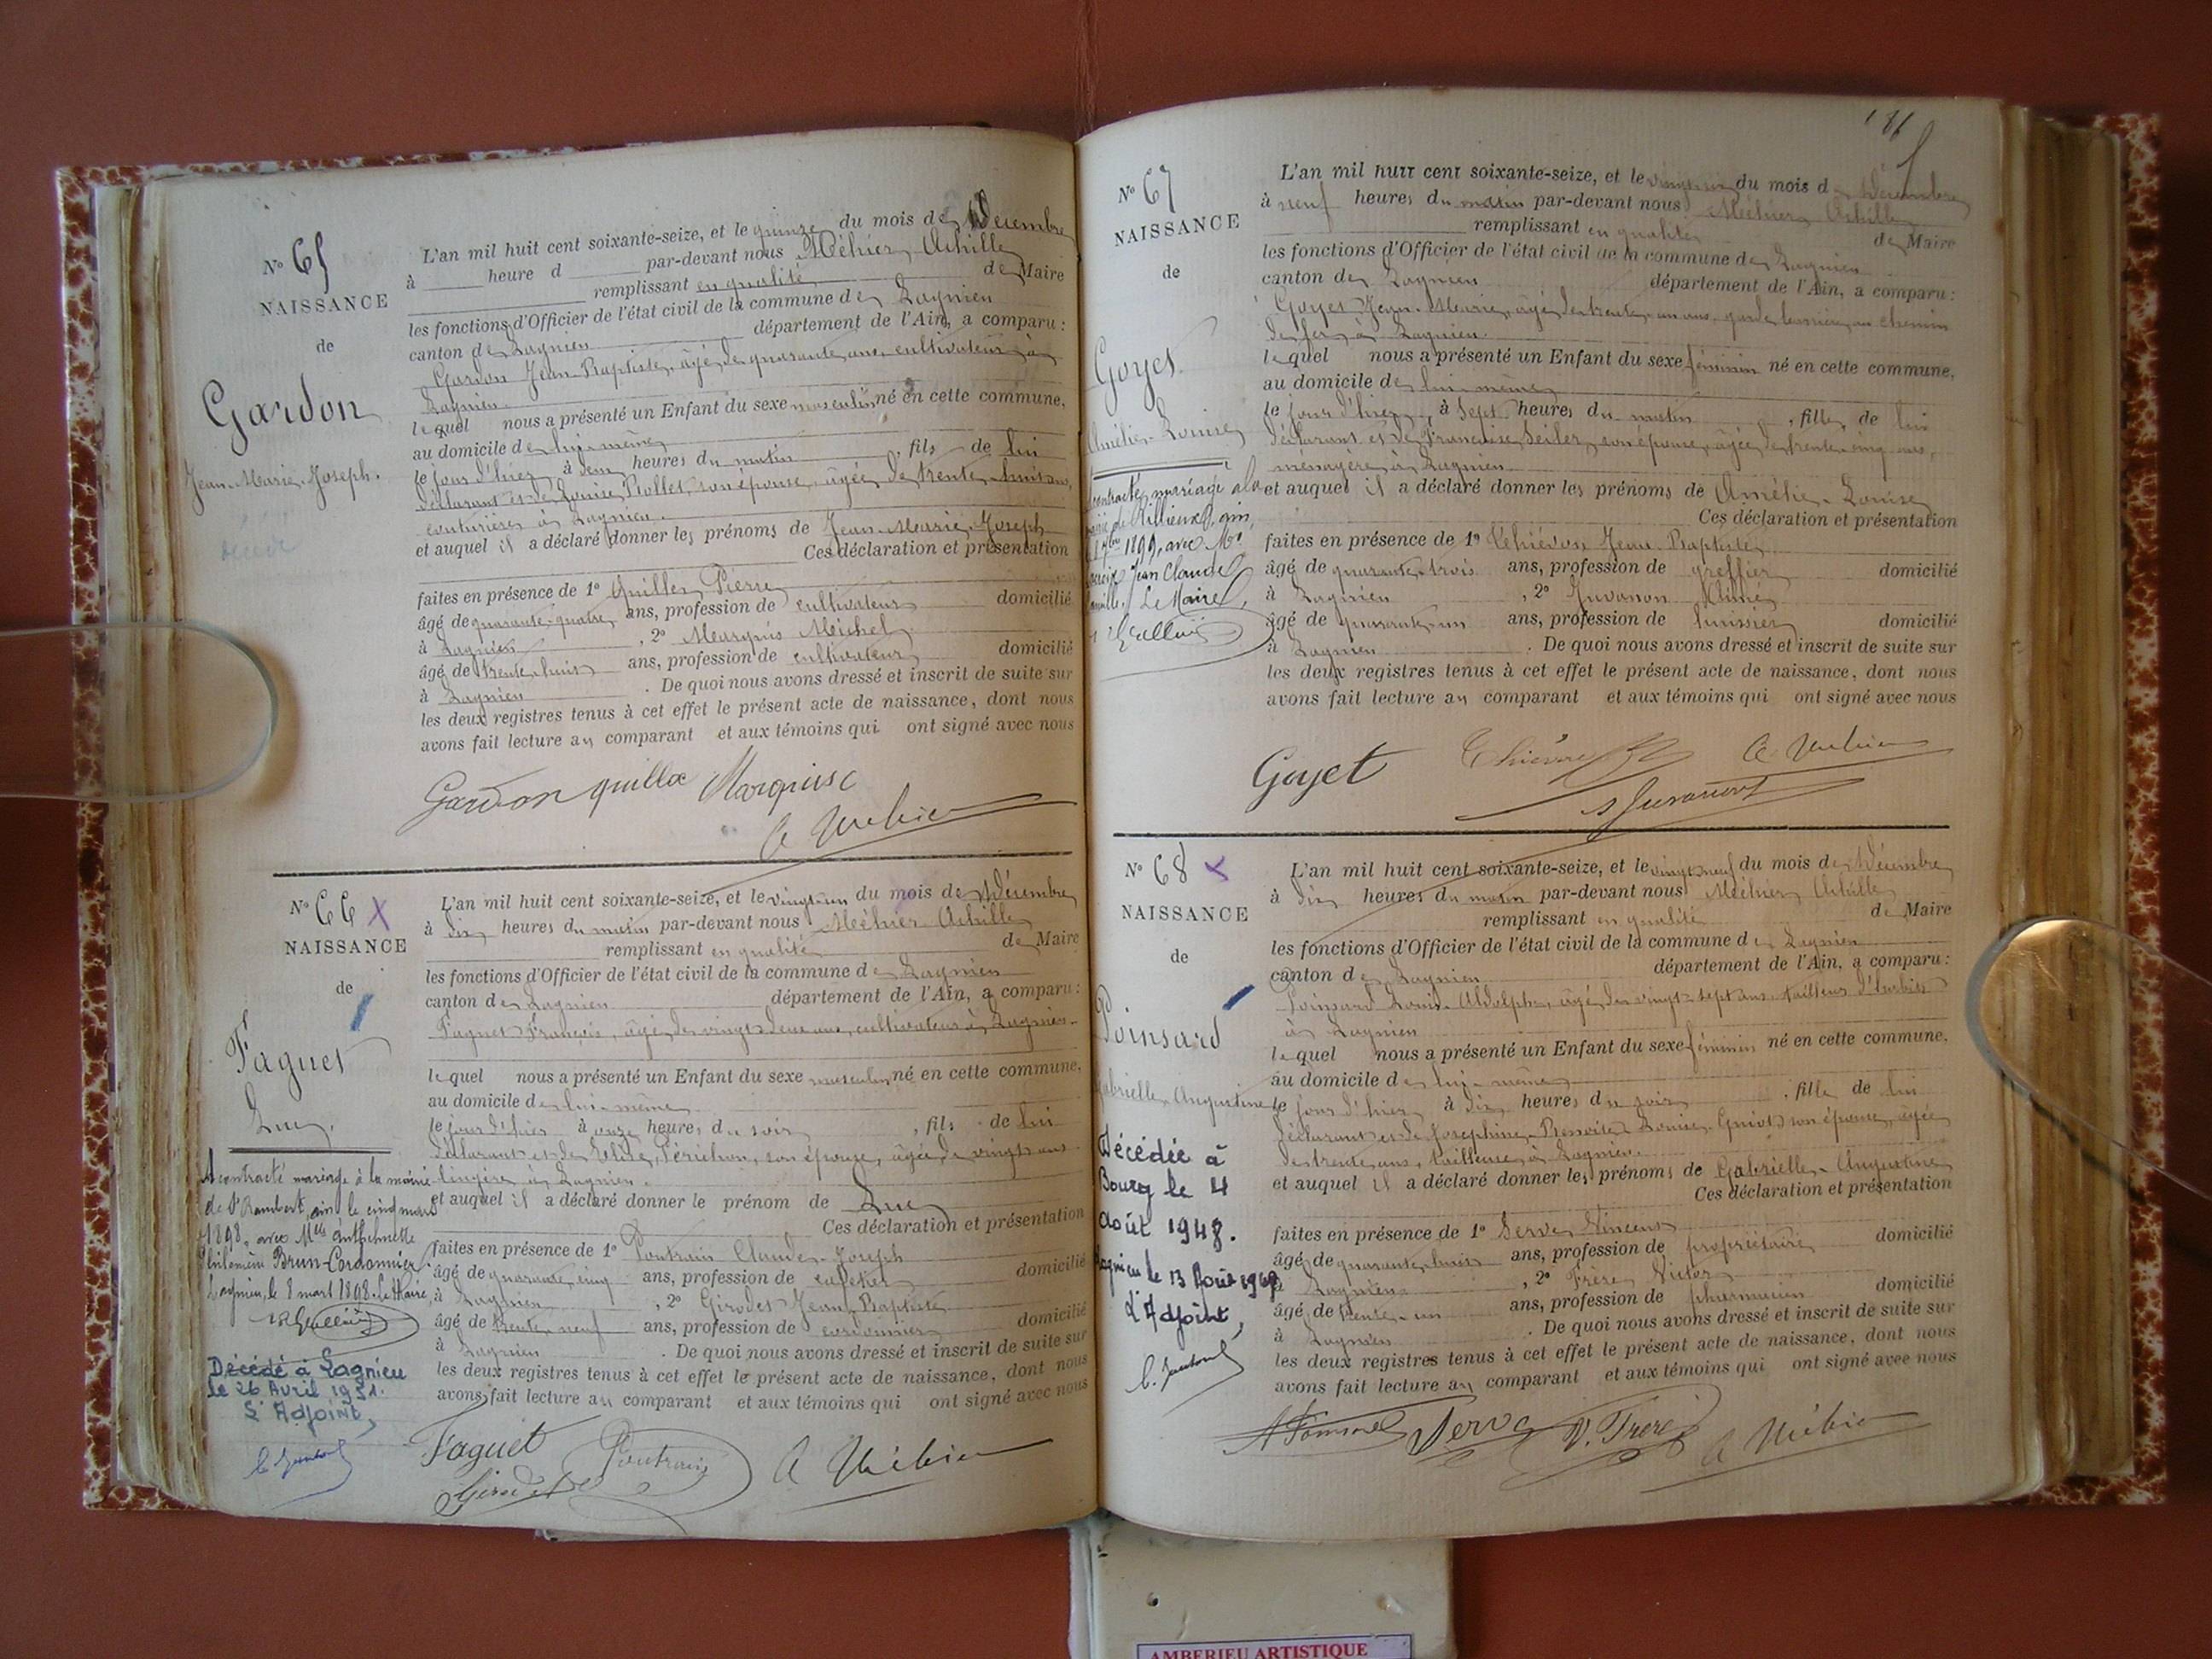 N° 65
NAISSANCE
de
Gardon
Jean-Marie-Joseph.
décédé
L'an mil huit cent soixante-seize, et le quinze du mois de Décembre
à heure d par-devant nous Méhier Achille
remplissant en qualité de Maire
les fonctions d'Officier de l'état civil de la commune de Lagnieu
canton de Lagnieu département de l'Ain, a comparu :
Gardon Jean-Baptiste, âgé de quarante ans, cultivateur à
Lagnieu
lequel nous a présenté un Enfant du sexe masculin né en cette commune,
au domicile de lui-même
le jour d'hier, à deux heures du matin, fils de lui
déclarant et de Louise Piollet, son épouse, âgée de trente-huit ans,
couturière à Lagnieu.
et auquel il a déclaré donner les prénoms de Jean-Marie-Joseph
Ces déclaration et présentation
faites en présence de 1° Quillex Pierre
âgé de quarante-quatre ans, profession de cultivateur domicilié
à Lagnieu, 2° Marquis Michel
âgé de trente-huit ans, profession de cultivateur domicilié
à Lagnieu. De quoi nous avons dressé et inscrit de suite sur
les deux registres tenus à cet effet le présent acte de naissance, dont nous
avons fait lecture au comparant et aux témoins qui ont signé avec nous
Gardon quillex Marquis
A Méhier
N° 66 X
NAISSANCE
de
Faguet
Luc
A contracté mariage à la mairie
de St Rambert, ain le cinq mars
1898, avec Mlle Anthelmette
Philomène Brun-Cordonnier
Lagnieu, le 8 mars 1898. Le Maire,
Décédé à Lagnieu
le 26 Avril 1951.
L'Adjoint,
L'an mil huit cent soixante-seize, et le vingt-un du mois de Décembre
à dix heures du matin par-devant nous Méhier Achille
remplissant en qualité de Maire
les fonctions d'Officier de l'état civil de la commune de Lagnieu
canton de Lagnieu département de l'Ain, a comparu :
Faguet François, âgé de vingt-deux ans, cultivateur à Lagnieu
lequel nous a présenté un Enfant du sexe masculin né en cette commune,
au domicile de lui-même
le jour d'hier à onze heures du soir, fils de lui
déclarant et de Elise Périchon, son épouse, âgée de vingt ans
lingère à Lagnieu.
et auquel il a déclaré donner le prénom de Luc
Ces déclaration et présentation
faites en présence de 1° Poutrain Claude-Joseph
âgé de quarante-cinq ans, profession de cafetier domicilié
à Lagnieu, 2° Girodet Jean-Baptiste
âgé de trente-neuf ans, profession de cordonnier domicilié
à Lagnieu. De quoi nous avons dressé et inscrit de suite sur
les deux registres tenus à cet effet le présent acte de naissance, dont nous
avons fait lecture au comparant et aux témoins qui ont signé avec nous
Faguet Poutrain A Méhier
Girodet
181
N° 67
NAISSANCE
de
Goyet
Amélie-Louise
contracté mariage à la
mairie de Rillieux, ain,
1899, avec Mr
Jean Claude
Le Maire,
L'an mil huit cent soixante-seize, et le du mois de Décembre
à neuf heures du matin par-devant nous Méhier Achille
remplissant en qualité de Maire
les fonctions d'Officier de l'état civil de la commune de Lagnieu
canton de Lagnieu département de l'Ain, a comparu :
Goyet Jean-Marie, âgé de trente-un ans, garde barrière au chemin
de fer, à Lagnieu
lequel nous a présenté un Enfant du sexe féminin né en cette commune,
au domicile de lui-même
le jour d'hier, à sept heures du matin, fille de lui
déclarant et de Françoise Seiler, son épouse, âgée de trente-cinq ans,
ménagère à Lagnieu
et auquel il a déclaré donner les prénoms de Amélie-Louise
Ces déclaration et présentation
faites en présence de 1° Jean-Baptiste
âgé de quarante-trois ans, profession de greffier domicilié
à Lagnieu, 2° Juvanon Aimé
âgé de quarante-un ans, profession de huissier domicilié
à Lagnieu. De quoi nous avons dressé et inscrit de suite sur
les deux registres tenus à cet effet le présent acte de naissance, dont nous
avons fait lecture au comparant et aux témoins qui ont signé avec nous
Goyet A Méhier
Juvanon
N° 68 X
NAISSANCE
de
Poinsard
Gabrielle-Augustine
Décédée à
Bourg le 4
août 1948.
Lagnieu le 13 Août 1948
L'Adjoint,
L'an mil huit cent soixante-seize, et le vingt-neuf du mois de Décembre
à dix heures du matin par-devant nous Méhier Achille
remplissant en qualité de Maire
les fonctions d'Officier de l'état civil de la commune de Lagnieu
canton de Lagnieu département de l'Ain, a comparu :
Poinsard Louis-Adolphe, âgé de vingt-sept ans, tailleur d'habits
à Lagnieu
lequel nous a présenté un Enfant du sexe féminin né en cette commune,
au domicile de lui-même
le jour d'hier à dix heures du soir, fille de lui
déclarant et de Joséphine-Benoite-Louise Guiot son épouse, âgée
de trente ans, tailleuse, à Lagnieu.
et auquel il a déclaré donner les prénoms de Gabrielle-Augustine
Ces déclaration et présentation
faites en présence de 1° Serve Vincent
âgé de quarante-huit ans, profession de propriétaire domicilié
à Lagnieu, 2° Frère Victor
âgé de trente-un ans, profession de pharmacien domicilié
à Lagnieu. De quoi nous avons dressé et inscrit de suite sur
les deux registres tenus à cet effet le présent acte de naissance, dont nous
avons fait lecture au comparant et aux témoins qui ont signé avec nous
A Poinsard Serve V. Frere A Méhier
AMBERIEU ARTISTIQUE